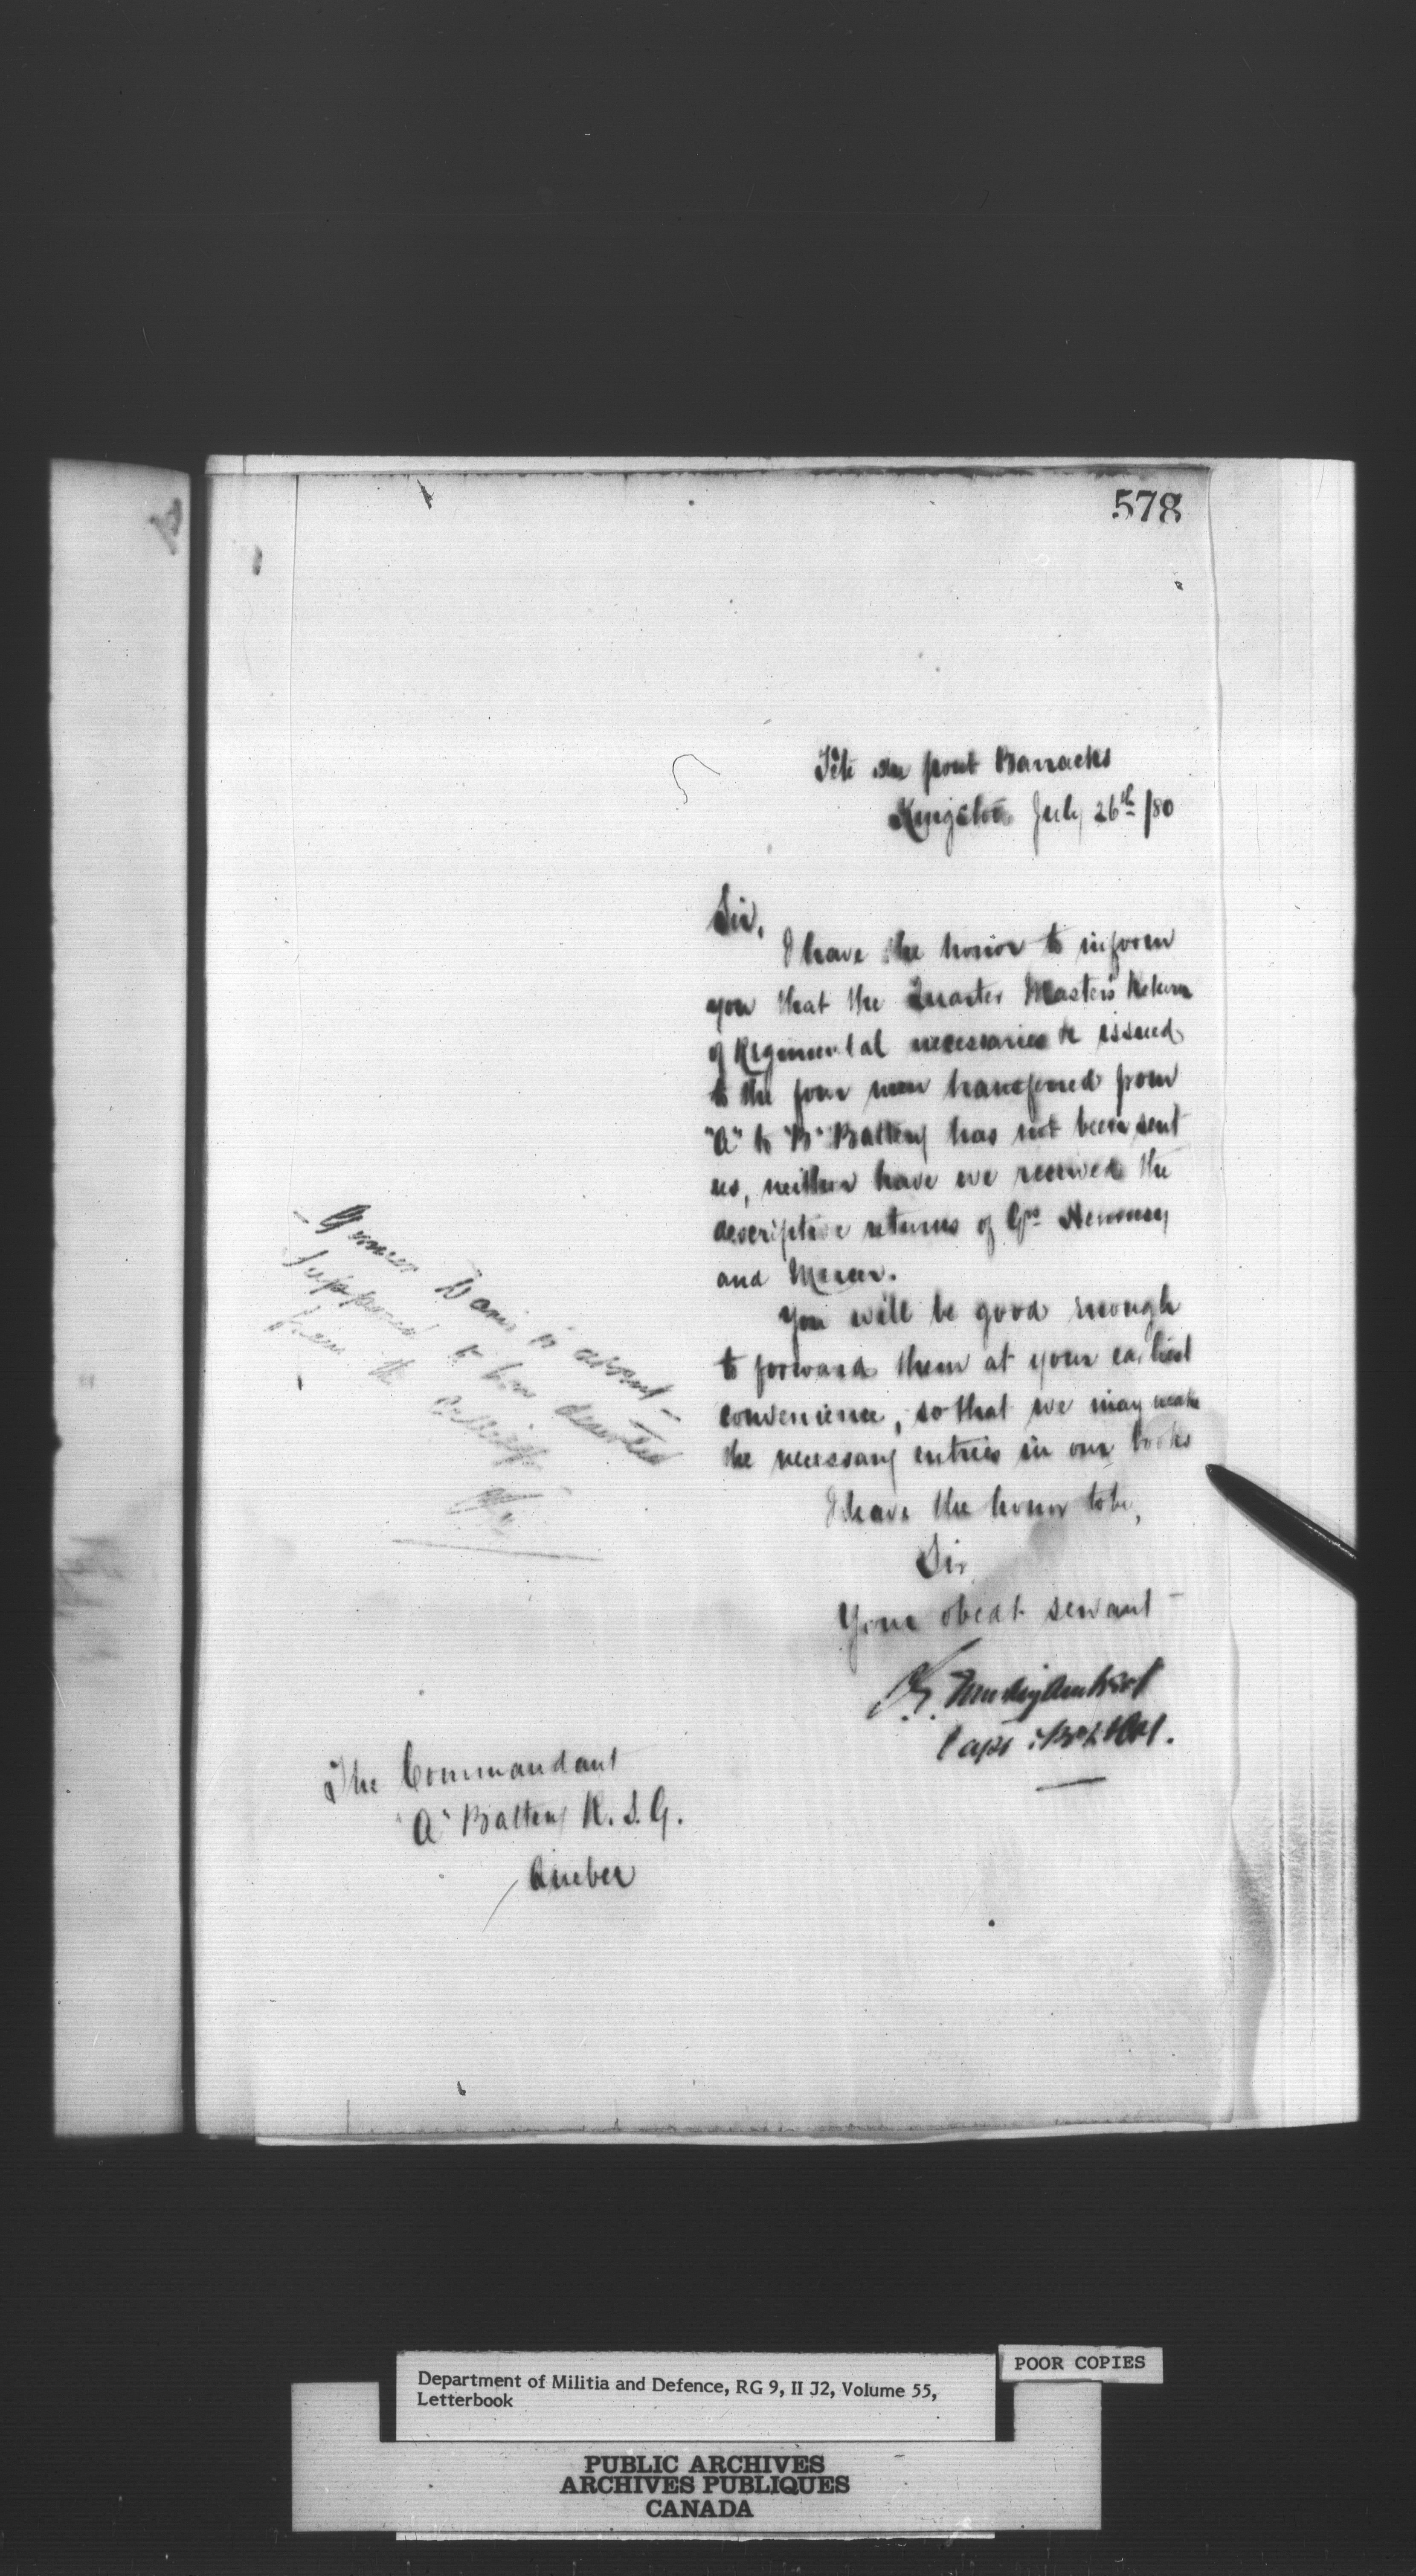 578
Tête du pont Barracks
Kingston July 26th /80
Sir,
I have the honor to inform
you that the Quarter Master's Return
of Regimental necessaries &c issued
to the four men transferred from
"A" to "B" Battery has not been sent
us, neither have we received the
descriptive returns of Grs Hennesey
and Mercer.
You will be good enough
to forward them at your earliest
convenience, so that we may make
the necessary entries in our books
I have the honor to be,
Sir
Your obedt servant
Capt
- Gunner Davis is absent -
supposed to have deserted
from the
The Commandant
"A" Battery R. S. G.
Quebec
POOR COPIES
Department of Militia and Defence, RG 9, II J2, Volume 55,
Letterbook
PUBLIC ARCHIVES
ARCHIVES PUBLIQUES
CANADA